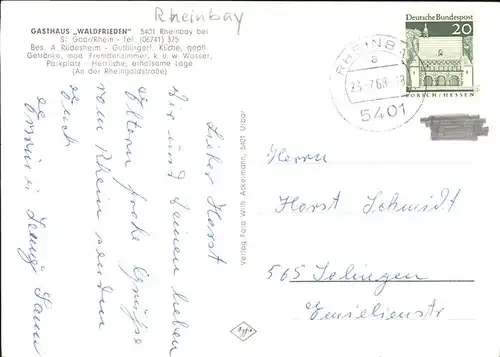 Rheinbay
GASTHAUS „WALDFRIEDEN" 5401 Rheinbay bei
St. Goar/Rhein - Tel. (06741) 375
Bes. A. Rüdesheim - Gutbürgerl. Küche, gepfl.
Getränke, mod. Fremdenzimmer, k. u. w. Wasser,
Parkplatz - Herrliche, erholsame Lage
(An der Rheingoldstraße)
Lieber Horst
Dir und Deinen lieben
Eltern frohe Grüße
vom Rhein senden
Euch
Verlag Foto Wilh. Ackermann, 5401 Urbar
RHEINBAY
a
23.-7.69.-18
5401
Deutsche Bundespost
20
LORSCH/HESSEN
Herrn
Horst Schmidt
565 Solingen
Emilienstr